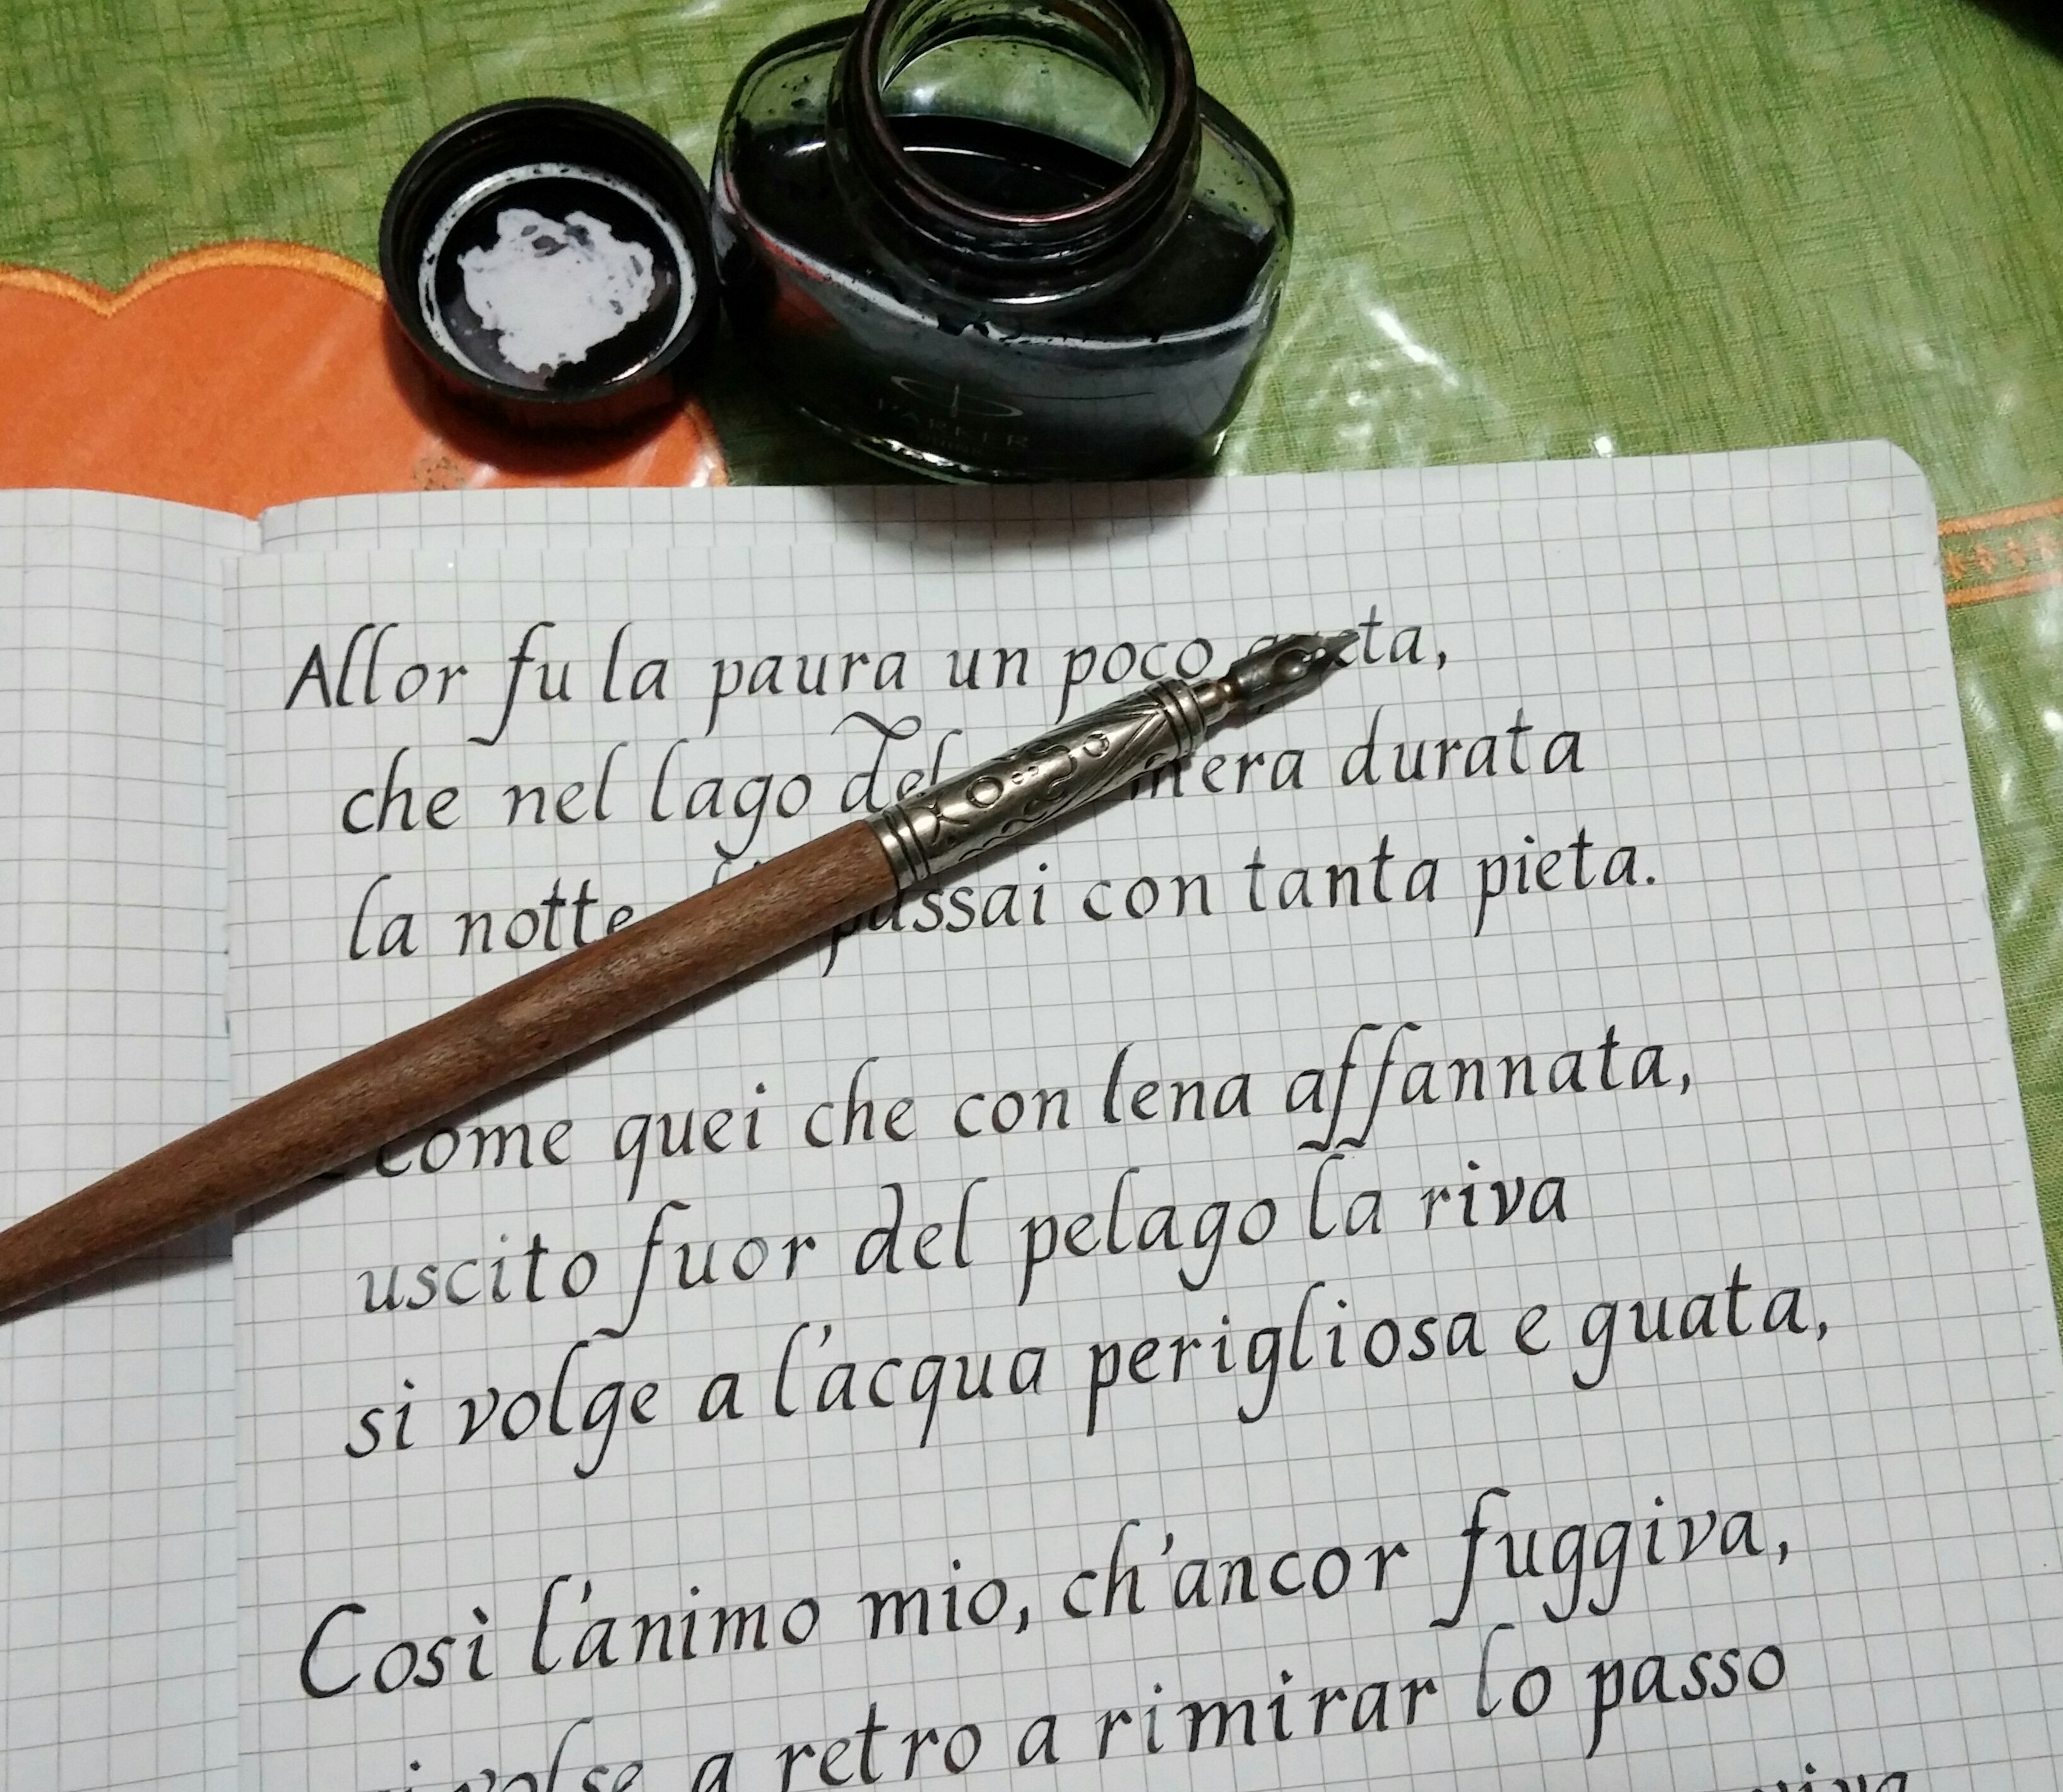 PARKER
Allor fu la paura un poco
che nel lago del durata
la notte passai con tanta pieta.
come quei che con lena affannata,
uscito fuor del pelago la riva
si volge a l'acqua perigliosa e guata,
Così l'animo mio, ch'ancor fuggiva,
si volse a retro a rimirar lo passo
viva